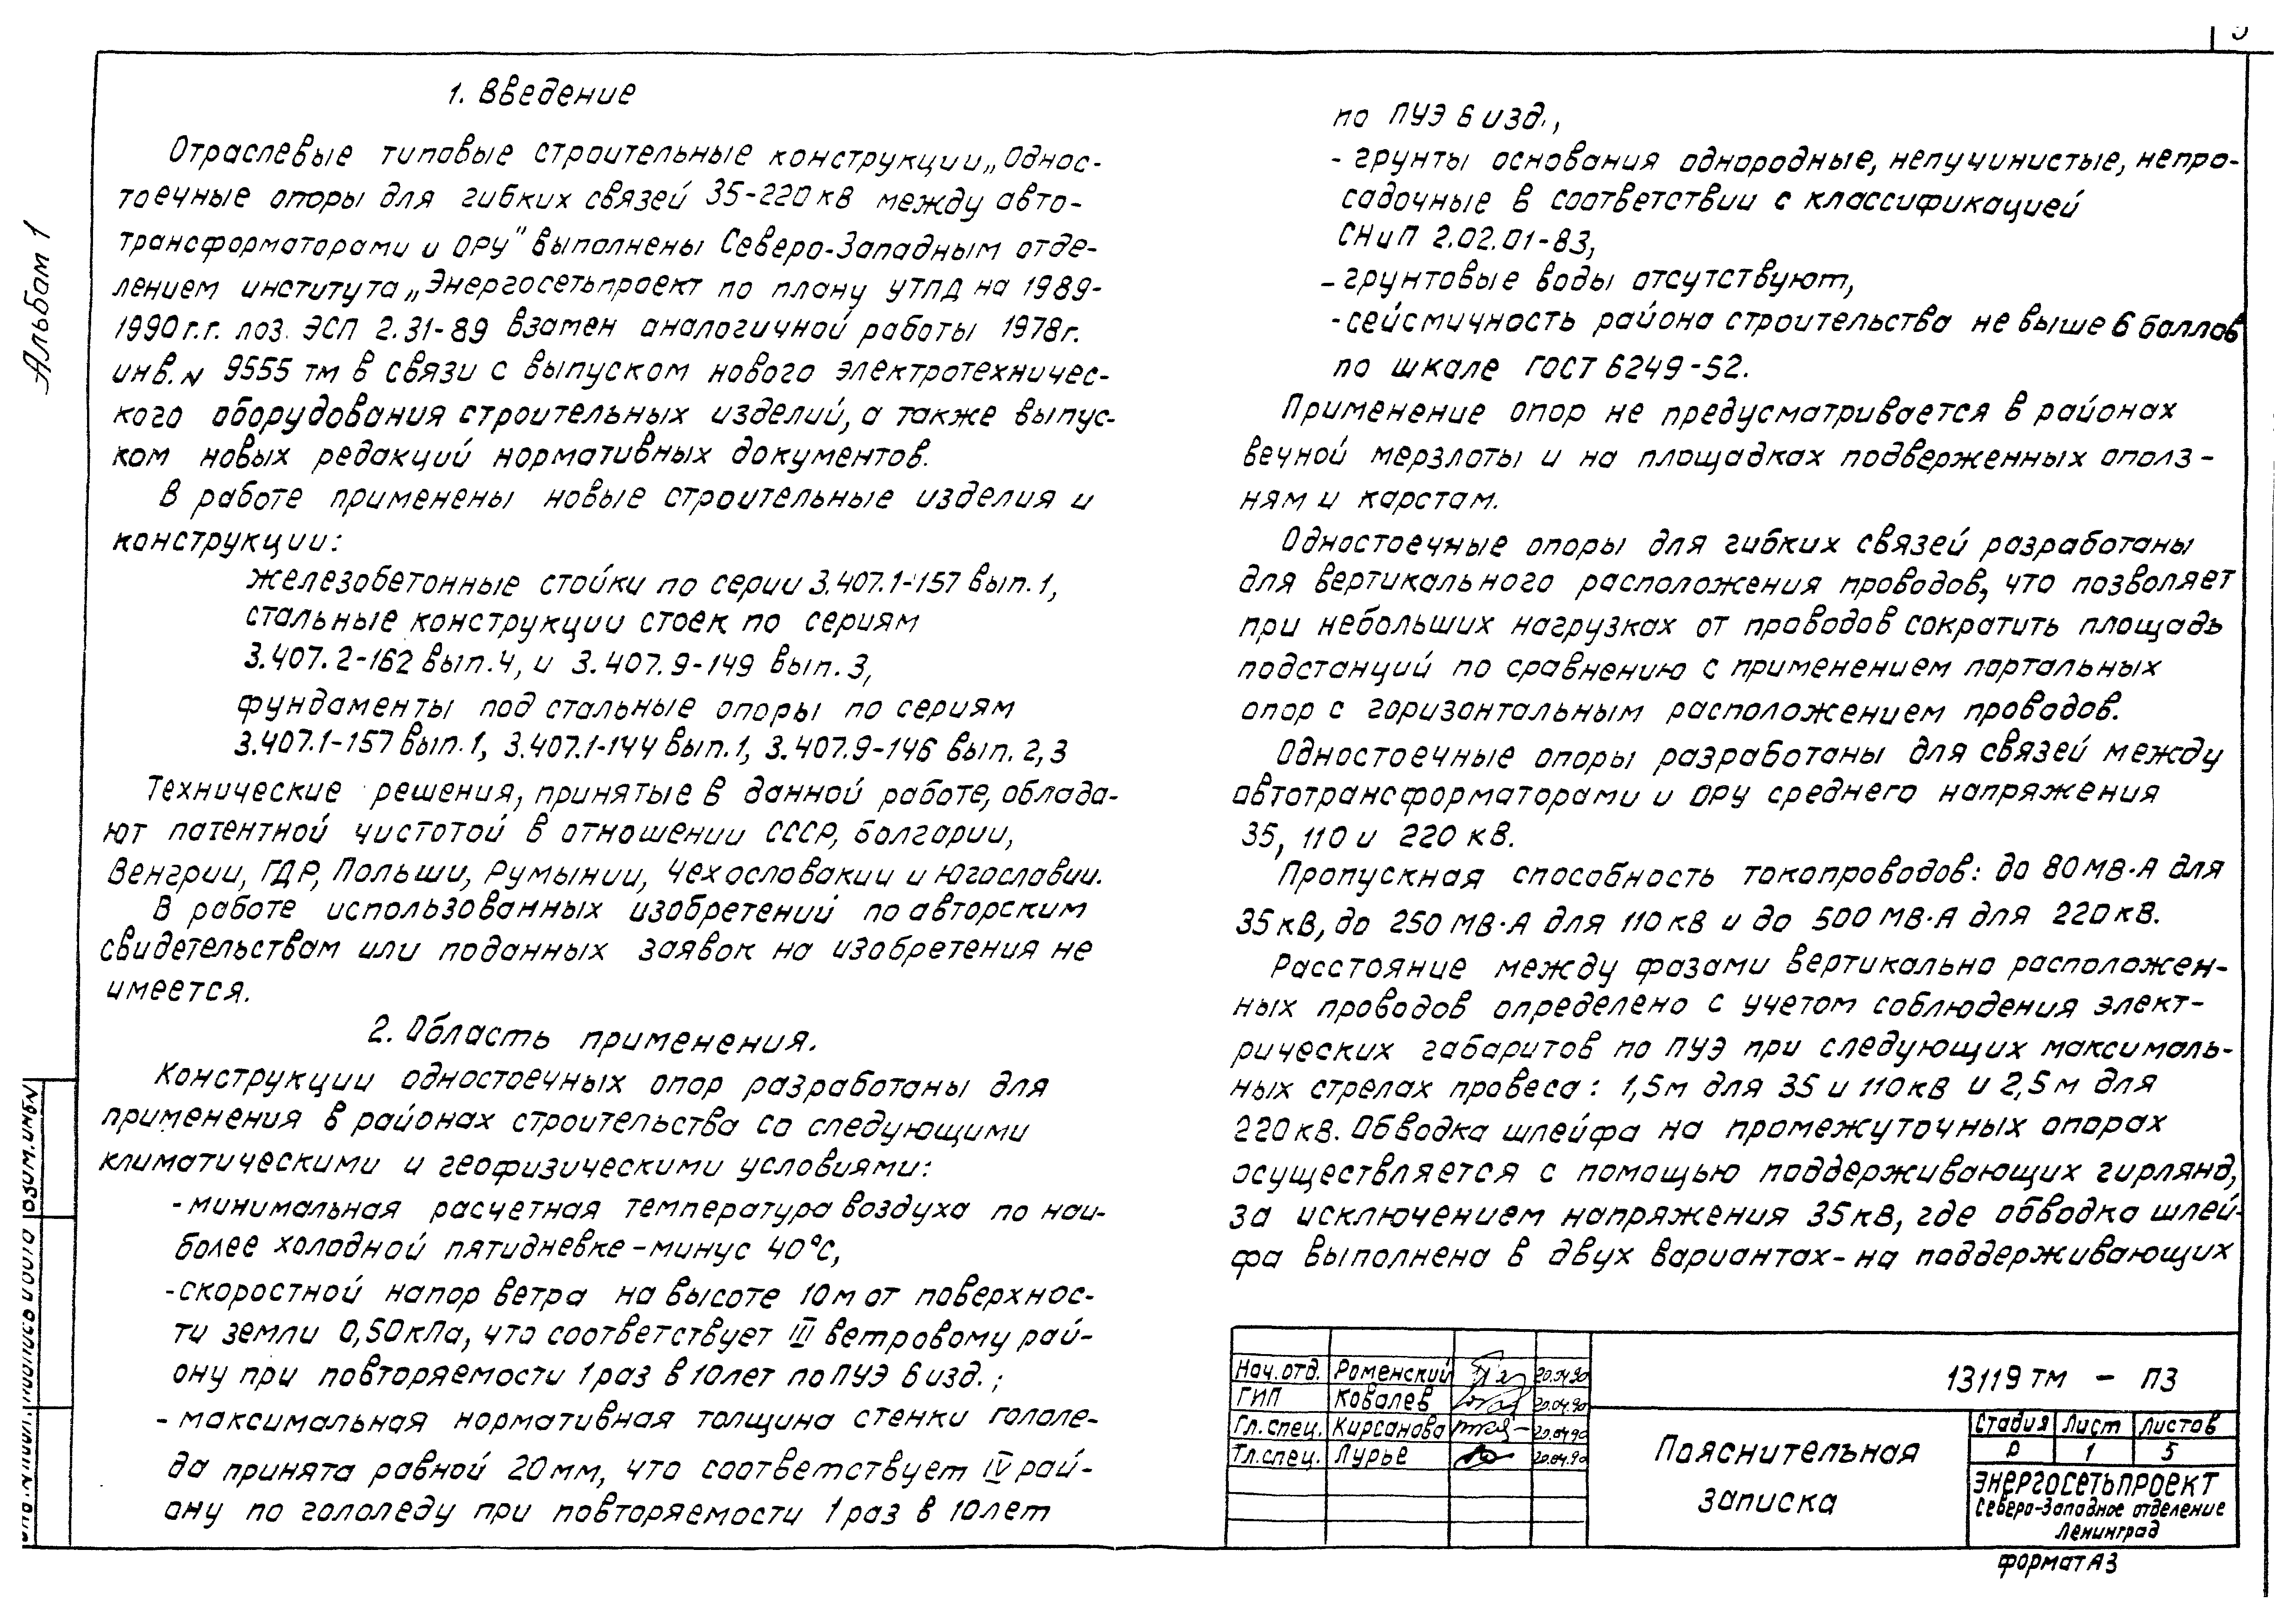 Альбом 1
1. Введение
Отраслевые типовые строительные конструкции „Однос-
тоечные опоры для гибких связей 35-220 кВ между авто-
трансформаторами и ОРУ" выполнены Северо-Западным отде-
лением института „Энергосетьпроект по плану УТПД на 1989-
1990 г.г. поз. ЭСП 2.31-89 взамен аналогичной работы 1978г.
инв. N 9555 тм в связи с выпуском нового электротехничес-
кого оборудования строительных изделий, а также выпус-
ком новых редакций нормативных документов.
В работе применены новые строительные изделия и
конструкции:
железобетонные стойки по серии 3.407.1-157 вып.1,
стальные конструкции стоек по сериям
3.407.2-162 вып.4, и 3.407.9-149 вып.3,
фундаменты под стальные опоры по сериям
3.407.1-157 вып.1, 3.407.1-144 вып.1, 3.407.9-146 вып. 2,3
Технические решения, принятые в данной работе, облада-
ют патентной чистотой в отношении СССР, Болгарии,
Венгрии, ГДР, Польши, Румынии, Чехословакии и Югославии.
В работе использованных изобретений по авторским
свидетельствам или поданных заявок на изобретения не
имеется.
2. Область применения.
Конструкции одностоечных опор разработаны для
применения в районах строительства со следующими
климатическими и геофизическими условиями:
- минимальная расчетная температура воздуха по наи-
более холодной пятидневке - минус 40°С,
- скоростной напор ветра на высоте 10м от поверхнос-
ти земли 0,50кПа, что соответствует III ветровому рай-
ону при повторяемости 1 раз в 10лет по ПУЭ 6 изд.;
- максимальная нормативная толщина стенки гололе-
да принята равной 20мм, что соответствует IV рай-
ону по гололеду при повторяемости 1 раз в 10лет
по ПУЭ 6 изд.,
- грунты основания однородные, непучинистые, непро-
садочные в соответствии с классификацией
СНиП 2.02.01-83,
- грунтовые воды отсутствуют,
- сейсмичность района строительства не выше 6 баллов
по шкале ГОСТ 6249-52.
Применение опор не предусматривается в районах
вечной мерзлоты и на площадках подверженных ополз-
ням и карстам.
Одностоечные опоры для гибких связей разработаны
для вертикального расположения проводов, что позволяет
при небольших нагрузках от проводов сократить площадь
подстанций по сравнению с применением портальных
опор с горизонтальным расположением проводов.
Одностоечные опоры разработаны для связей между
автотрансформаторами и ОРУ среднего напряжения
35, 110 и 220 кВ.
Пропускная способность токопроводов: до 80 МВ·А для
35 кВ, до 250 МВ·А для 110 кВ и до 500 МВ·А для 220 кВ.
Расстояние между фазами вертикально расположен-
ных проводов определено с учетом соблюдения элект-
рических габаритов по ПУЭ при следующих максималь-
ных стрелах провеса: 1,5м для 35 и 110кВ и 2,5м для
220 кВ. Обводка шлейфа на промежуточных опорах
осуществляется с помощью поддерживающих гирлянд,
за исключением напряжения 35 кВ, где обводка шлей-
фа выполнена в двух вариантах - на поддерживающих
Нач. отд. Роменский 20.04.90
ГИП Ковалев 20.04.90
Гл. спец. Кирсанова 20.04.90
Гл. спец. Лурье 20.04.90
13119 тм - ПЗ
Пояснительная
записка
Стадия Лист Листов
Р 1 5
ЭНЕРГОСЕТЬПРОЕКТ
Северо-Западное отделение
Ленинград
формат А3